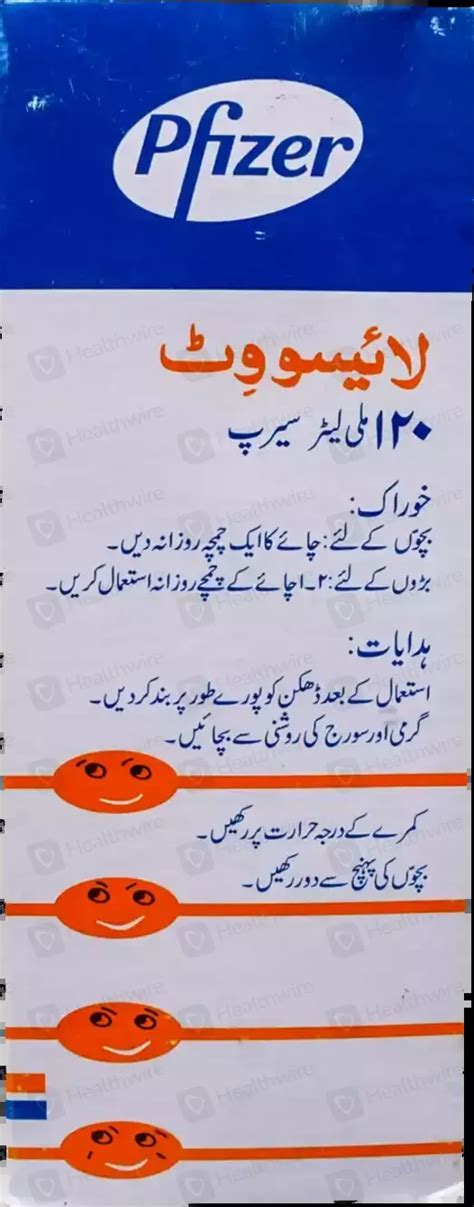 Pfizer
لائیسووِٹ
۱۲۰ ملی لیٹر سیرپ
خوراک:
بچوّں کے لئے: چائے کا ایک چمچہ روزانہ دیں۔
بڑوں کے لئے: ۲۔۱ چائے کے چمچے روزانہ استعمال کریں۔
ہدایات:
استعمال کے بعد ڈھکن کو پورے طور پر بند کر دیں۔
گرمی اور سورج کی روشنی سے بچائیں۔
کمرے کے درجہ حرارت پر رکھیں۔
بچوّں کی پہنچ سے دور رکھیں۔
Healthwire